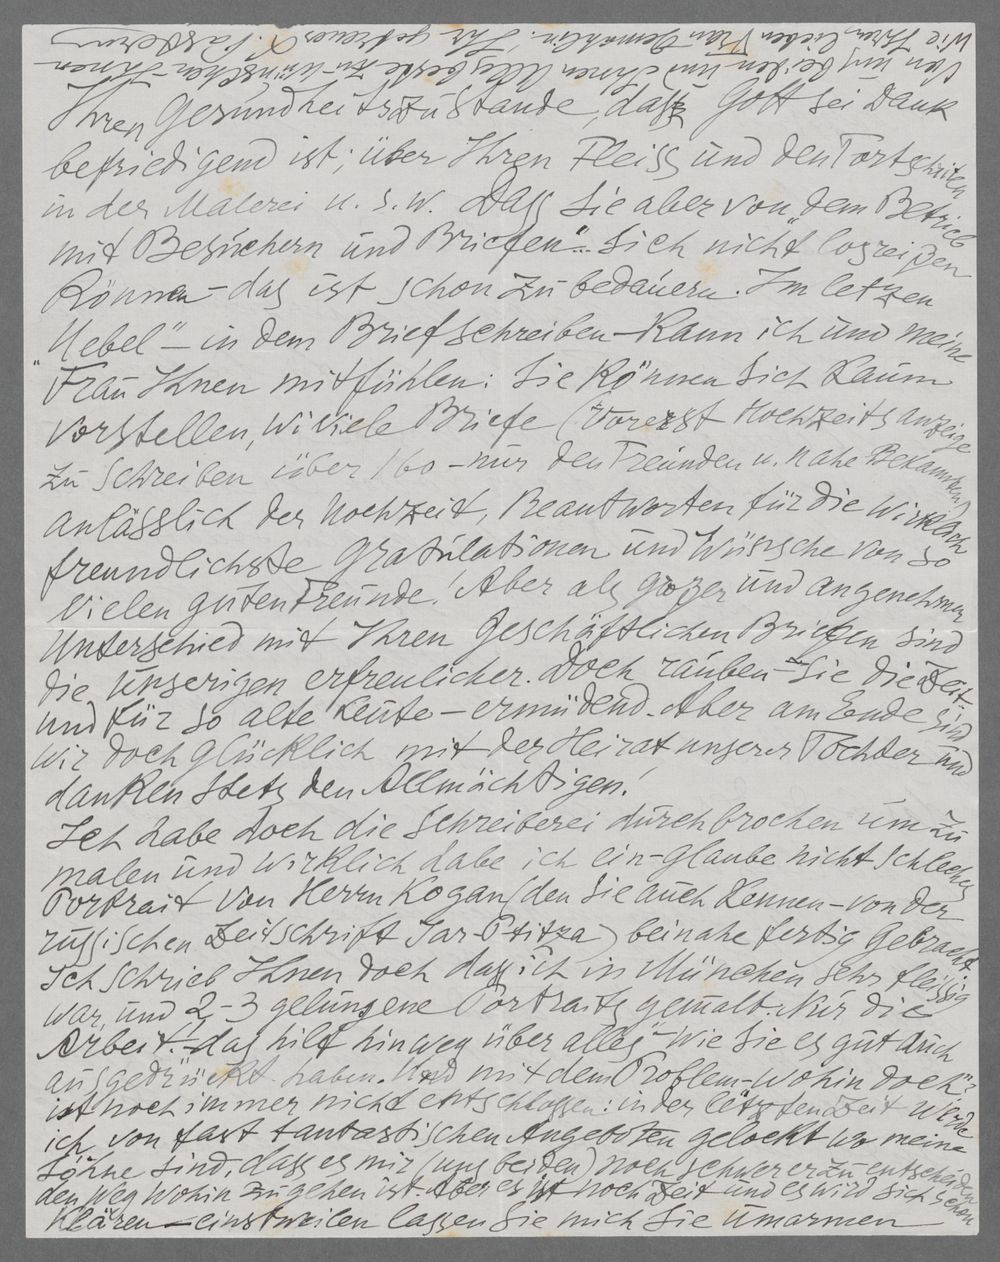 Ihren Gesundheitszustande, dass Gott sei Dank
befriedigend ist; über Ihren Fleiss und den Fortschritten
in der Malerei u. s. w. Dass Sie aber von „dem Betrieb
mit Besuchern und Briefen"... sich nicht losreißen
können – das ist schon zu bedauern. Im letzten
„Uebel" – in dem Briefschreiben – kann ich und meine
Frau Ihnen mitfühlen: Sie können sich kaum
vorstellen, wi viele Briefe (vorerst Hochzeitsanzeige
zu schreiben über 160 – nur den Freunden u. nahe Bekannten)
anlässlich der Hochzeit, Beantworten für die wirklich
freundlichste Gratulationen und Wünsche von so
vielen guten Freunde! Aber als großer und angenehmer
Unterschied mit Ihren Geschäftlichen Briefen sind
die unserigen erfreulicher. Doch rauben Sie die Zeit
und für so alte Leute – ermüdend. Aber am Ende sind
wir doch glücklich mit der Heirat unserer Tochter und
danken stets den Allmächtigen!
Ich habe doch die Schreiberei durchbrochen um zu
malen und wirklich habe ich ein – glaube nicht schlechtes
Portrait von Herrn Kogan (den Sie auch kennen – von der
russischen Zeitschrift Jar-Ptitza) beinahe fertig gebracht.
Ich schrieb Ihnen doch dass ich in München sehr fleissig
war, und 2–3 gelungene Portraits gemalt. Nur die
Arbeit – das hilf hinweg über alles – wie Sie es gut auch
ausgedrückt haben. Und mit dem Problem – wohin doch?
ist noch immer nicht entschlossen: in der letzten Zeit werde
ich von fast fantastischen Angeboten gelockt wo meine
Söhne sind, dass es mir (uns beiden) noch schwerer zu entscheiden
den Weg wohin zu gehen ist. Aber es ist noch Zeit und es wird sich schon
klären – einstweilen lassen Sie mich Sie umarmen
Von uns beiden und Ihnen Allerbeste zu wünschen – Ihnen
wie Ihrer lieben Frau Gemahlin. Ihr getreuer L. Pasternak